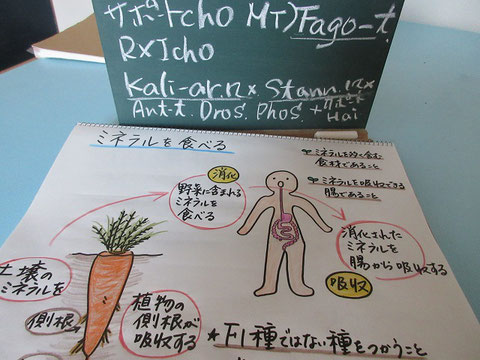 サポートcho MT)Fago-t.
RXIcho
Kali-ar.12x Stann.12x
Ant-t. Dros. Phos. +サポート
Hai
ミネラルを食べる
ミネラルを多く含む
食材であること
ミネラルを吸収できる
腸であること
消化
野菜に含まれる
ミネラルを
食べる
消化された
ミネラルを
腸から吸収する
吸収
土壌の
ミネラルを
側根
植物の
側根が
吸収する
★F1種ではない種をつかうこと